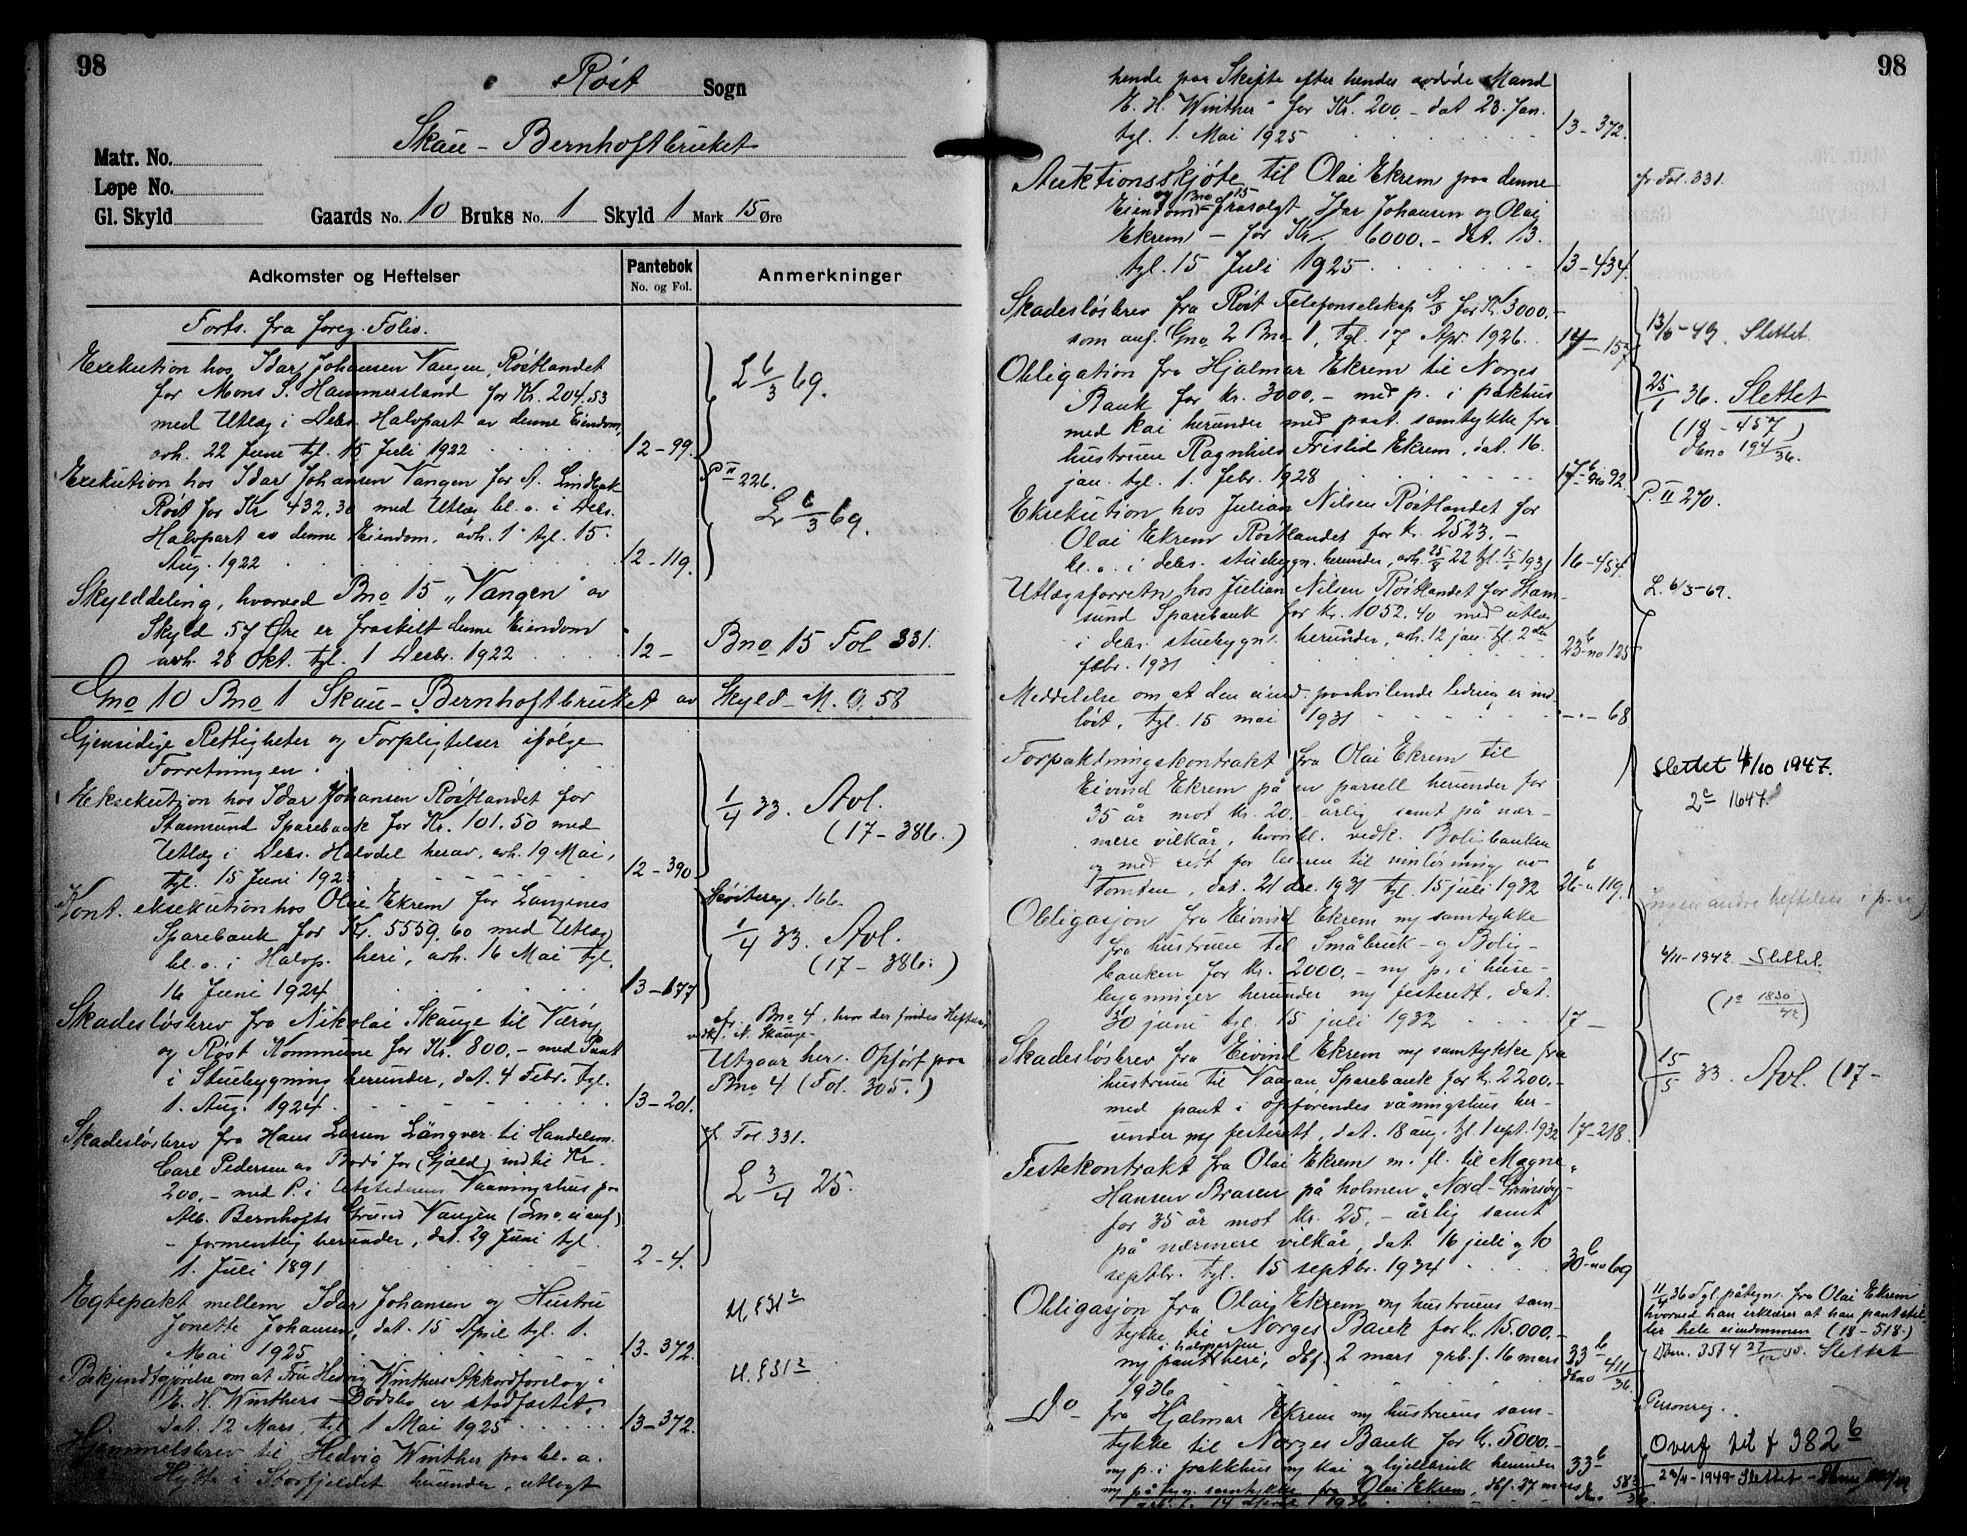 98
Røst Sogn
Skau - Bernhoftbruket
Matr. No.
Løpe No.
Gl. Skyld
Gaards No. 10 Bruks No. 1 Skyld 1 Mark 15 Øre
Adkomster og Heftelser
Pantebok
No. og Fol.
Anmerkninger
Forts. fra foreg. Folio.
Exekution hos Idar Johansen Vangen, Røstlandet
for Mons S. Hammersland for Kr. 204.53
med Utlæg i Debs. Halvpart av denne Eiendom,
avh. 22 Juni tgl. 15 Juli 1922 12-99.
L 6/3 69.
Exekution hos Idar Johansen Vangen for A. Lindbak
Røst for Kr 432,30 med Utlæg bl. a. i Debs.
Halvpart av denne Eiendom, avh. 1 tgl. 15.
Aug. 1922 12-119.
P II 226.
L 6/3 69.
Skylddeling, hvorved Bno 15 "Vangen" av
Skyld 57 Øre er fraskilt denne Eiendom
avh. 28 Okt. tgl. 1 Decbr. 1922 12-
Bno 15 Fol 331.
Gno 10 Bno 1 Skau - Bernhoftbruket av Skyld M. 0,58
Gjensidige Rettigheter og Forpligtelser ifølge
Forretningen.
Eksekution hos Idar Johansen Røstlandet for
Stamsund Sparebank for Kr. 101.50 med
Utlæg i Debs. Halvdel herav, avh. 19 Mai,
tgl. 15 Juni 1923 12-390
1/4 33. Avl.
(17-386.)
Kont. eksekution hos Olai Ekrem for Langenes
Sparebank for Kr. 5559.60 med Utlæg
bl. a. i Halvp. heri, avh. 16 Mai tgl.
16 Juni 1924 13-177
166.
1/4 33. Avl.
(17-386.)
Skadesløsbrev fra Nikolai Skauge til Værøy
og Røst Kommune for Kr. 800,- med Pant
i Stuebygning herunder, dat. 4 Febr. tgl.
1. Aug. 1924 13-201.
cfr. Bno 4, hvor der findes Heftelser
vedk. N. Skauge
Utgaar her. Opført paa
Bno 4 (Fol. 305.)
Skadesløsbrev fra Hans Larsen Längver til Handelsm.
Carl Pedersen av Bodø for (Gjæld) indtil Kr.
200.- med P. i Udstederens Vaaningshus paa
Alb. Bernhofts Grund Vangen (Gno. ei anf.)
- formentlig herunder, dat. 29 Juni tgl.
1. Juli 1891 2-4.
cfr Fol. 331.
L 3/4 25.
Egtepakt mellem Idar Johansen og Hustru
Jonette Johansen, dat. 15 April tgl. 1.
Mai 1925 13-372.
Bekjendtgjørelse om at Fru Hedvig Winthers Akkordforslag i
E. H. Winthers Dødsbo er stadfæstet,
dat. 12 Mars, tgl 1 Mai 1925 13-372.
Hjemmelsbrev til Hedvig Winther paa bl. a.
Hytte i Storfjeldet herunder, utlagt
98
hende paa Skifte efter hendes avdøde Mand
E. H. Winther - for Kr. 200,- dat 23. Jan.
tgl. 1. Mai 1925 13-372.
Auktionsskjøte til Olai Ekrem paa denne
og Bno 15
Eiendom - frasolgt Idar Johansen og Olai
Ekrem - for Kr. 6000.- dat. 13.
tgl. 15 Juli 1925 13-434.
cfr Fol. 331.
Skadesløsbrev fra Røst Telefonselskap for Kr. 3000.-
som anf. Gno 2 Bno 1, tgl. 17 Apr. 1926. 14-157
13/6-49. Slettet.
Obligation fra Hjalmar Ekrem til Norges
Bank for kr. 3000,- med p. i pakhus
med kai herunder med paat. samtykke fra
hustruen Ragnhild Fristid Ekrem, dat. 16.
jan. tgl. 1. febr. 1928 17 b no 92.
25/1 36. Slettet
(18-457)
dbno 194/36.
Eksekution hos Julian Nilsen Røstlandet for
Olai Ekrem Røstlandet for kr. 2523.-
bl. a. i debs. stuebygn. herunder, avh. 22 tgl. 1931 16-454.
P. II 270.
Utlægsforretn. hos Julian Nilsen Røstlandet for Stam-
sund Sparebank for kr. 1052.40 med utlæg
i debs. stuebygn. herunder, avh. 12 jan. tgl. 2den
febr. 1931 23 b no 125
L. 6/3-69.
Meddelelse om at den eiend. paahvilende ledning er ind-
løst, tgl. 15 mai 1931 -"- 68
Forpaktningskontrakt fra Olai Ekrem til
Eivind Ekrem på en parsell herunder for
35 år mot kr. 20,- årlig samt på nær-
mere vilkår, hvoribl. vedk. Boligbanken
og med rett for leieren til innløsning av
Tomten, dat. 21 des. 1931 tgl. 15 juli 1932 26 b n 119.
Slettet 4/10 1947.
2c 1647.
Obligasjon fra Eivind Ekrem m/ samtykke
fra hustruen til Småbruk- og Bolig-
banken for kr. 2000.- m/ p. i huse-
bygninger herunder m/ festerett, dat.
30 juni tgl. 15 juli 1932 17-
Ingen andre heftelser i p.
4/11-1942 Slettet.
(1c 1830/42)
Skadesløsbrev fra Eivind Ekrem m/ samtykke fra
hustruen til Vaagan Sparebank for kr. 2200.-
med pant i opførendes våningshus her-
under m/ festerett, dat. 18 aug. tgl. 1 sept. 1932 17-218.
15/5 33. Avl. (17-
Festekontrakt fra Olai Ekrem m. fl. til Magne
Hansen Brasen på holmen "Nord-Grimsøy"
for 35 år mot kr. 25,- årlig samt
på nærmere vilkår, dat 16 juli og 10
septbr. tgl. 15 septbr. 1934 30 b no 69
Obligasjon fra Olai Ekrem m/ hustruens sam-
tykke til Norges Bank for kr. 15.000.-
i halvparten
m/ pant heri, dbf. 2 mars grbf. 16 mars
1936 33 b dbno 411/36.
11/4 36 Tgl. påtegn. fra Olai Ekrem
hvorved han erklærer at han pantstil-
ler hele eiendommen (18-518.)
Dbnr. 3514 Slettet
Do fra Hjalmar Ekrem m/ hustruens sam-
tykke til Norges Bank for kr. 5000.-
m/ p. i pakkhus m/ kai og hjellbruk herunder
m/ påtegn. samtykke fra Olai Ekrem, dbf. 27 mars
1936 33 b dbno 583/36.
Personreg.
Overf til f 382 b
23/4-1949 Slettet -